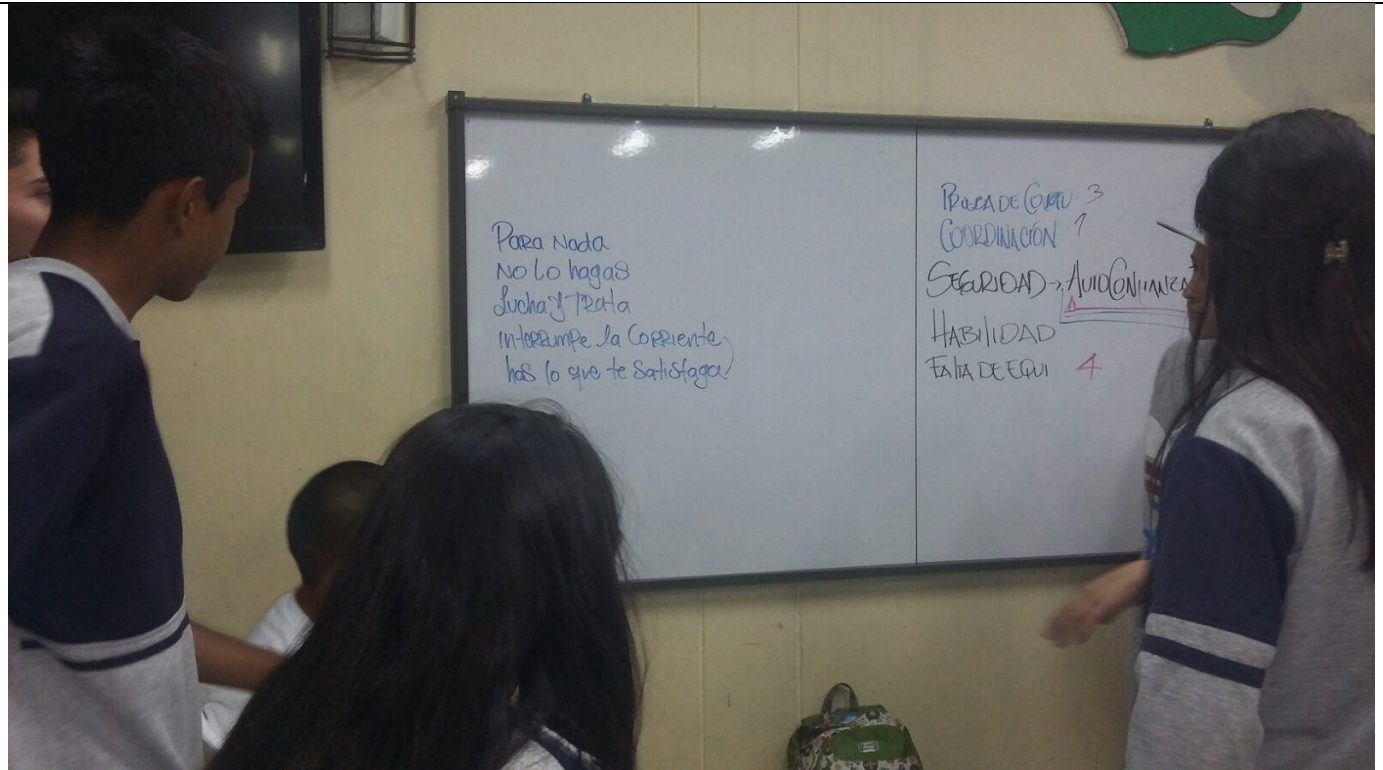 Para Nada
No Lo hagas
Lucha y Trata
interrumpe la Corriente
has lo que te Satisfaga
PRUEBA DE 3
COORDINACIÓN 1
SEGURIDAD → AUTOCONFIANZA
HABILIDAD
FALTA DE EQUI 4